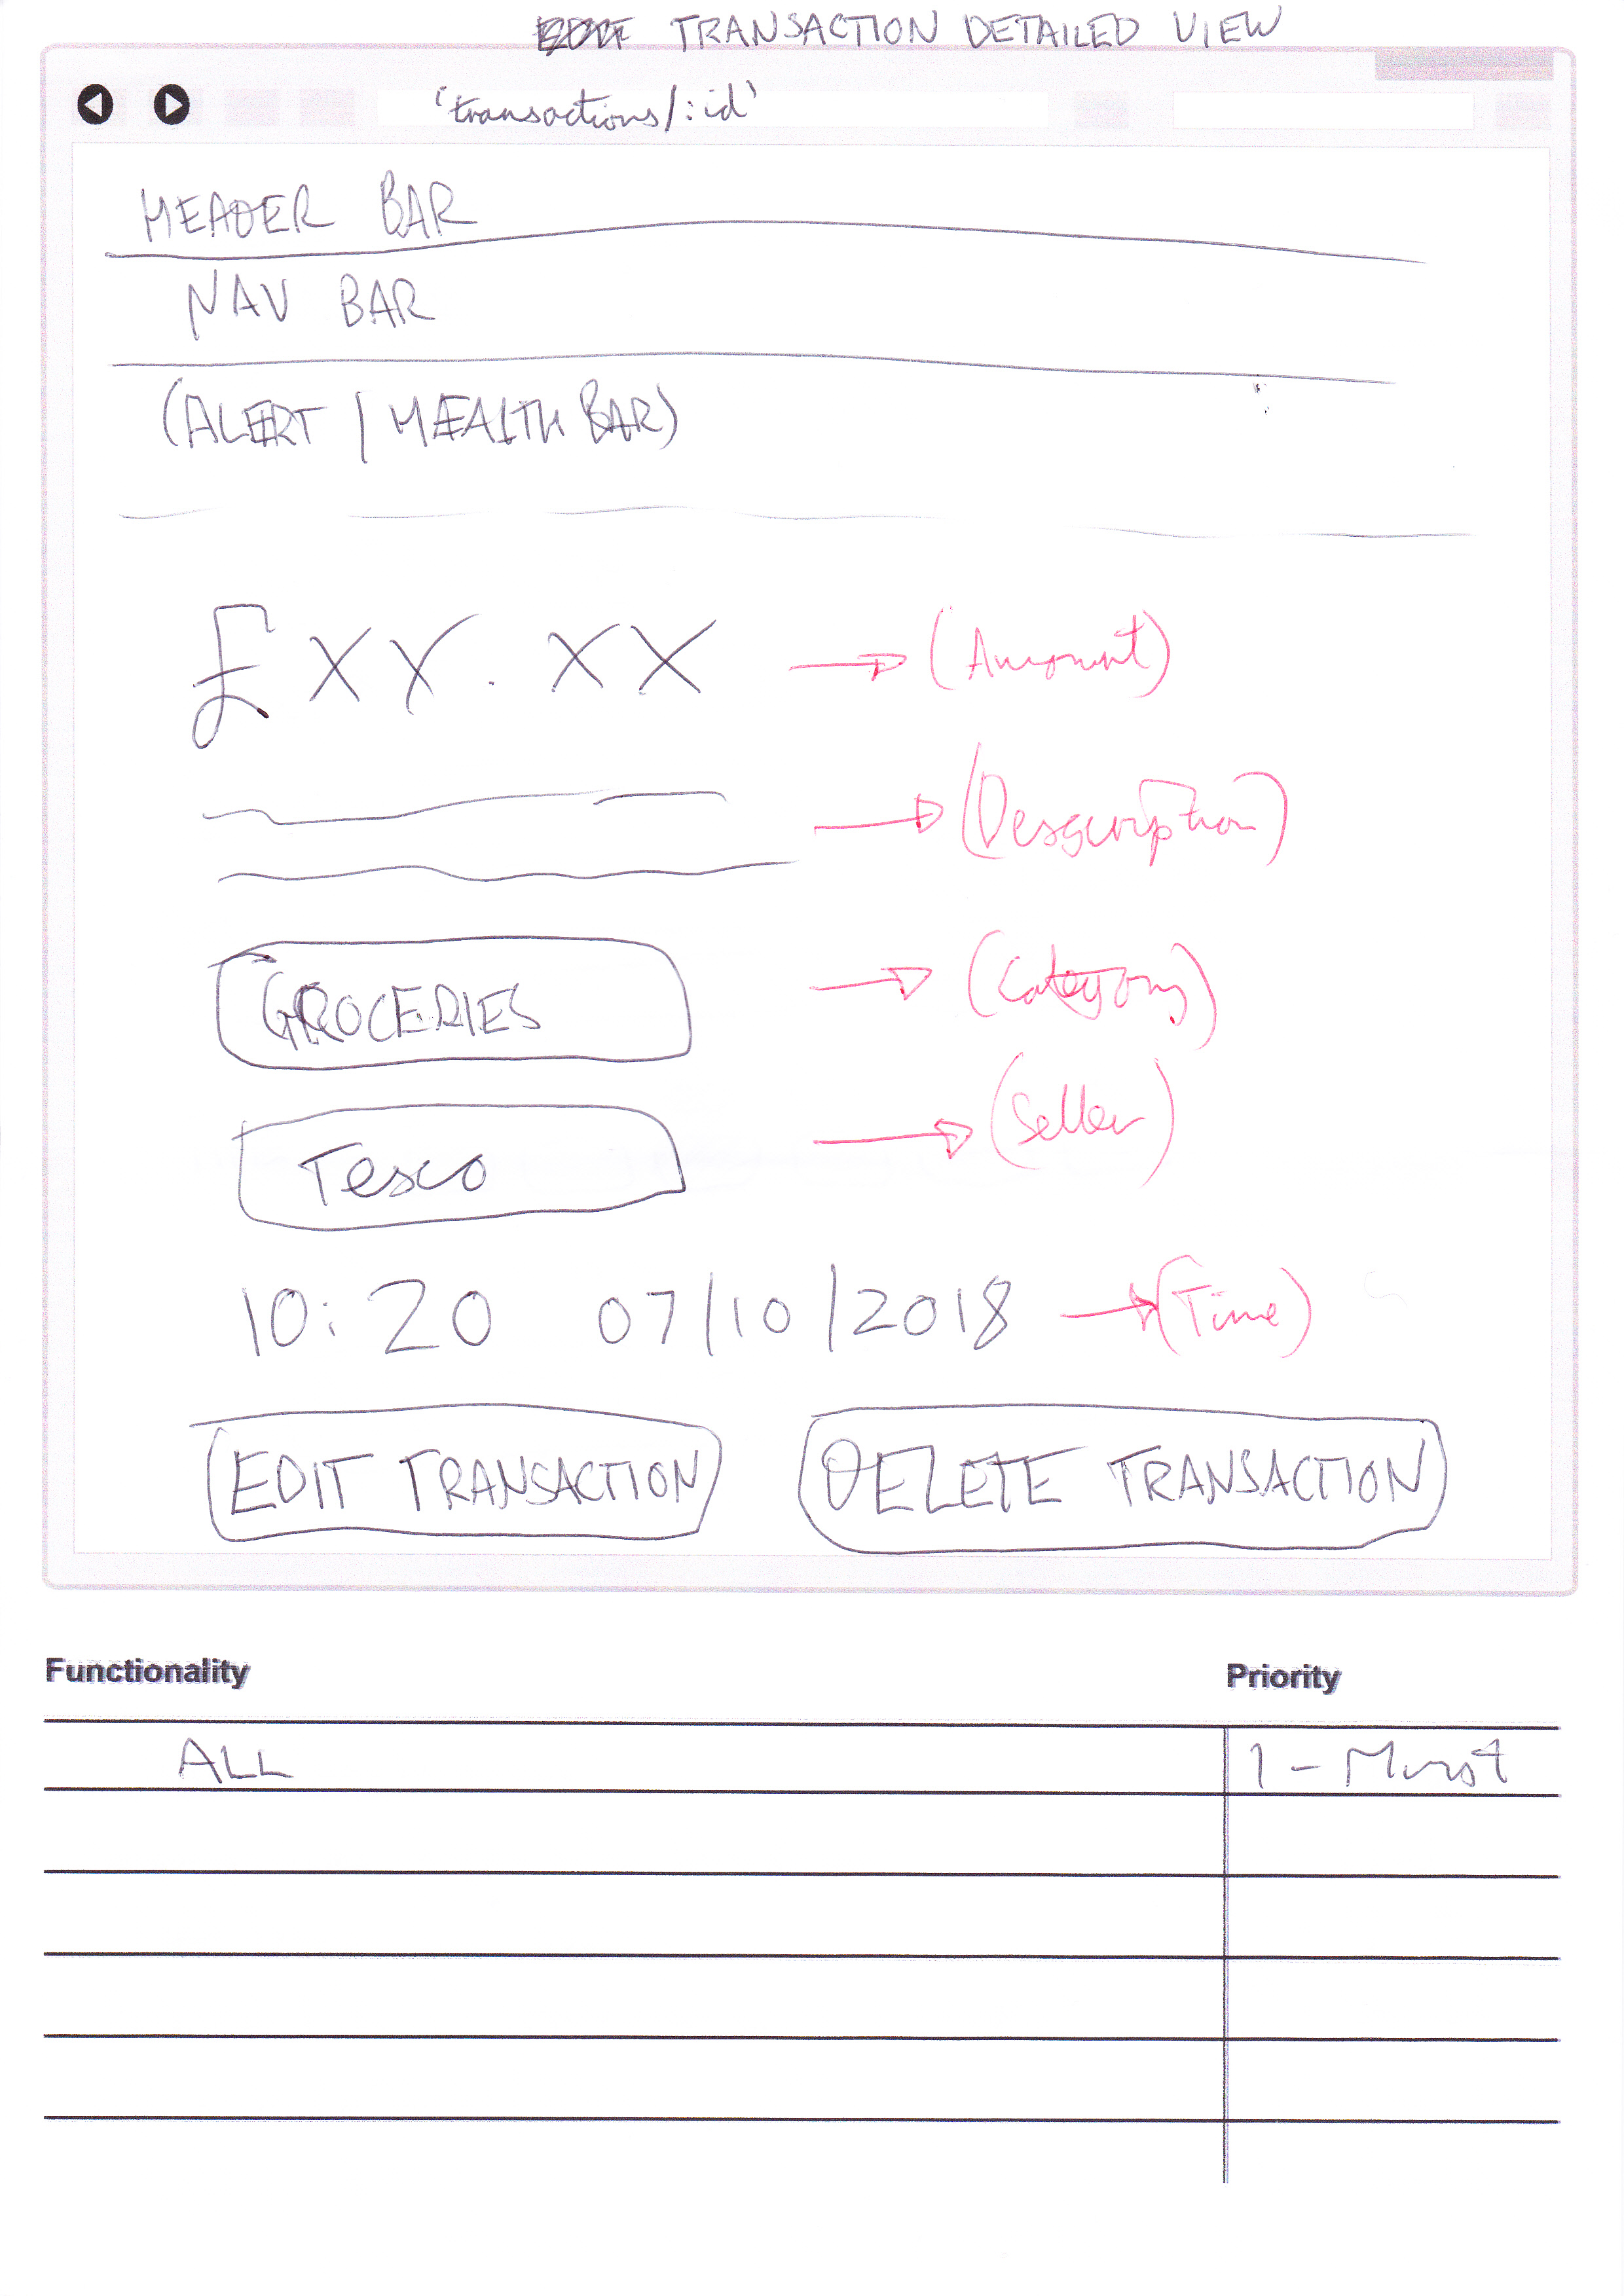 TRANSACTION DETAILED VIEW
'transactions/:id'
HEADER BAR
NAV BAR
(ALERT / HEALTH BAR)
£XX.XX → (Amount)
→ (Description)
GROCERIES → (Category)
Tesco → (Seller)
10:20 07/10/2018 → (Time)
EDIT TRANSACTION DELETE TRANSACTION
Functionality Priority
ALL 1 - Must